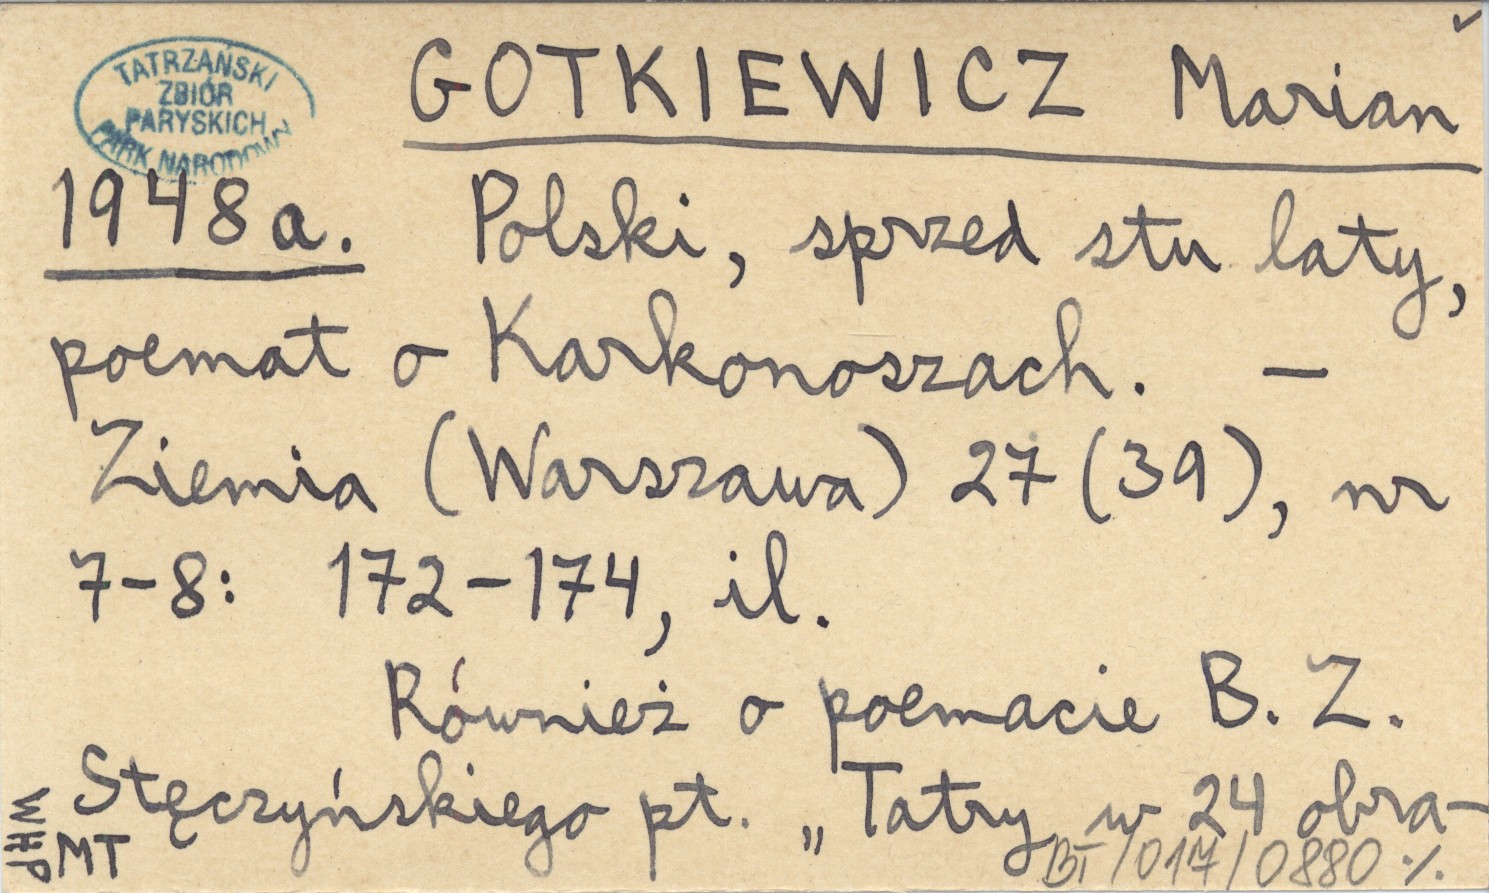 TATRZAŃSKI
ZBIÓR
PARYSKICH
PARK NARODOWY
GOTKIEWICZ Marian
1948a. Polski, sprzed stu laty,
poemat o Karkonoszach. –
Ziemia (Warszawa) 27(39), nr
7–8: 172–174, il.
Również o poemacie B. Z.
Stęczyńskiego pt. „Tatry w 24 obra-
WHP
MT
BT/017/0880 ·/.